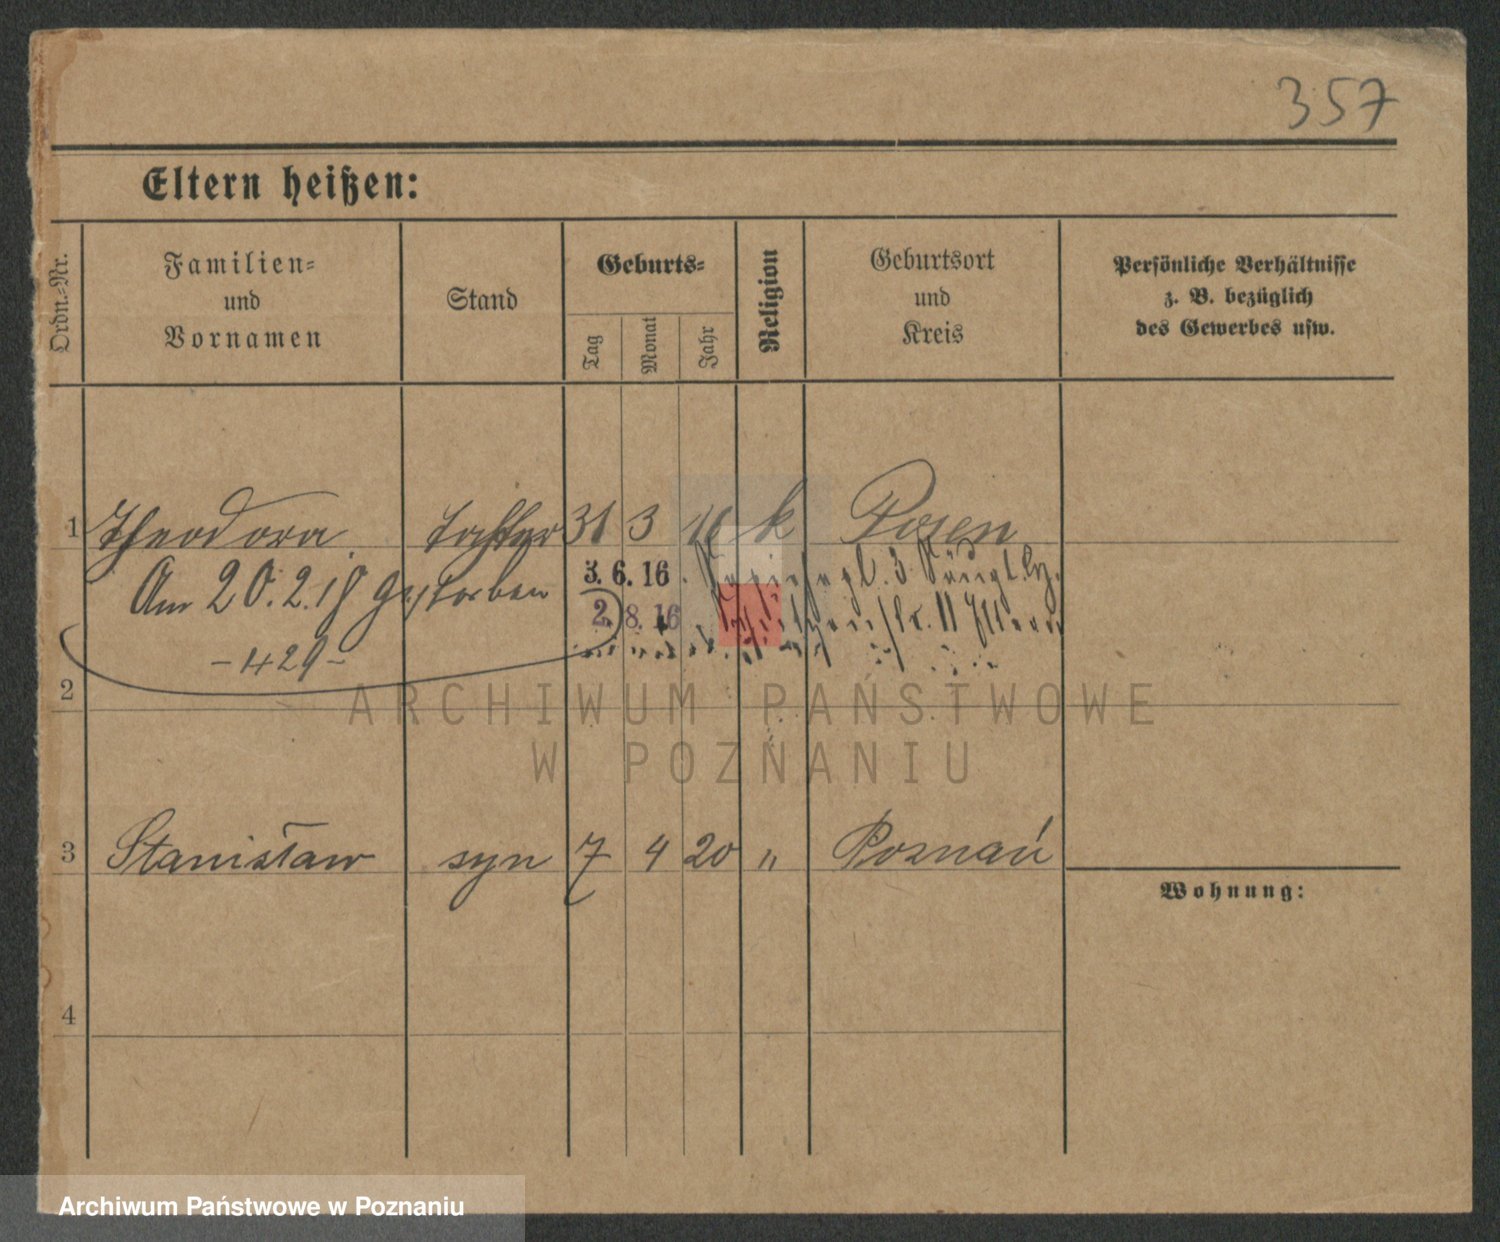 357
Eltern heißen:
Ordn.-Nr.
Familien-
und
Vornamen
Stand
Geburts-
Tag
Monat
Jahr
Religion
Geburtsort
und
Kreis
Persönliche Verhältnisse
z. B. bezüglich
des Gewerbes usw.
1 Theodora Tochter 31 3 16 k Posen
Am 20.2.18 gestorben
3. 6. 16
2. 8. 16
-429-
2
ARCHIWUM PAŃSTWOWE
W POZNANIU
3 Stanisław syn 7 4 20 " Poznań
Wohnung:
4
Archiwum Państwowe w Poznaniu